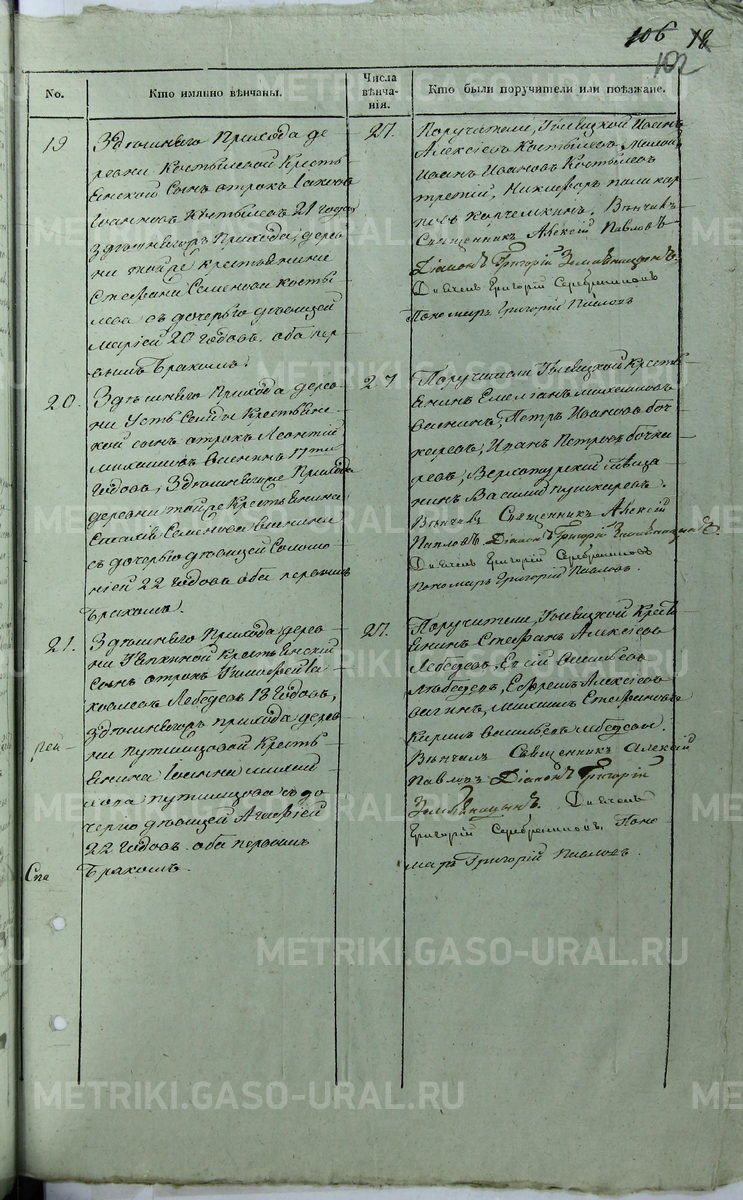 106 18
102
No.
Кто имянно вѣнчаны.
Числа вѣнчанія.
Кто были поручители или поѣзжане.
19
Здѣшняго Прихода де
ревни Костылевой Кресть
янской сынъ отрокъ
Іоанновъ Костылевъ 21 года
Здѣшнягожъ Прихода дерев
ни тойже крестьянина
Стефана Семенова Косты
лева съ дочерью дѣвицей
Маріей 20 годовъ оба пер
вымъ бракомъ.
27.
Поручители, Иванъ
Алексѣевъ Костылевъ
Иванъ Ивановъ Костылевъ
третій, Никифоръ Поликар
повъ Вѣнчалъ
Священникъ Алексій Павловъ
Діаконъ Григорій Земляницынъ
Дьячекъ Григорій Серебрениковъ
Пономарь Григорій Павловъ
20.
Здѣшняго Прихода дерев
ни Усть Крестьянс
кой сынъ отрокъ Леонтій
Михаиловъ 17ти
Годовъ, Здѣшнягоже Прихода
деревни тойже Крестьянина
Семенова
съ дочерью дѣвицей Соломо
ніей 22 Годовъ оба первымъ
бракомъ.
27
Поручители Кресть
янинъ Емельянъ Михаиловъ
Петръ Ивановъ Боч
каревъ, Иванъ Петровъ Бочка
ревъ, Верхотурскій Мѣща
нинъ Василій Пушкаревъ.
Вѣнчалъ Священникъ Алексій
Павловъ. Діаконъ Григорій Земляницынъ
Дьячекъ Григорій Серебрениковъ
Пономарь Григорій Павловъ.
21.
Здѣшняго Прихода, дерев
ни Крестьянский
сынъ отрокъ Тимофей Іа
ковлевъ Лебедевъ 18 Годовъ,
Здѣшнягожъ прихода дерев
ни Путимцовой Кресть
янина Іоанна Михай
лова Путимцова съ до
черью дѣвицей Агафіей
22 Годовъ оба первымъ
бракомъ.
27.
Поручители, Кресть
янинъ Стефанъ Алексѣевъ
Лебедевъ, Васильевъ
Лебедевъ, Ефремъ Алексѣевъ
Михаилъ Стефановъ
Кирилъ Васильевъ Лебедевы.
Вѣнчалъ Священникъ Алексій
Павловъ Діаконъ Григорій
Земляницынъ. Дьячекъ
Григорій Серебрениковъ, Поно
марь Григорій Павловъ.
рей
Спа
METRIKI.GASO-URAL.RU